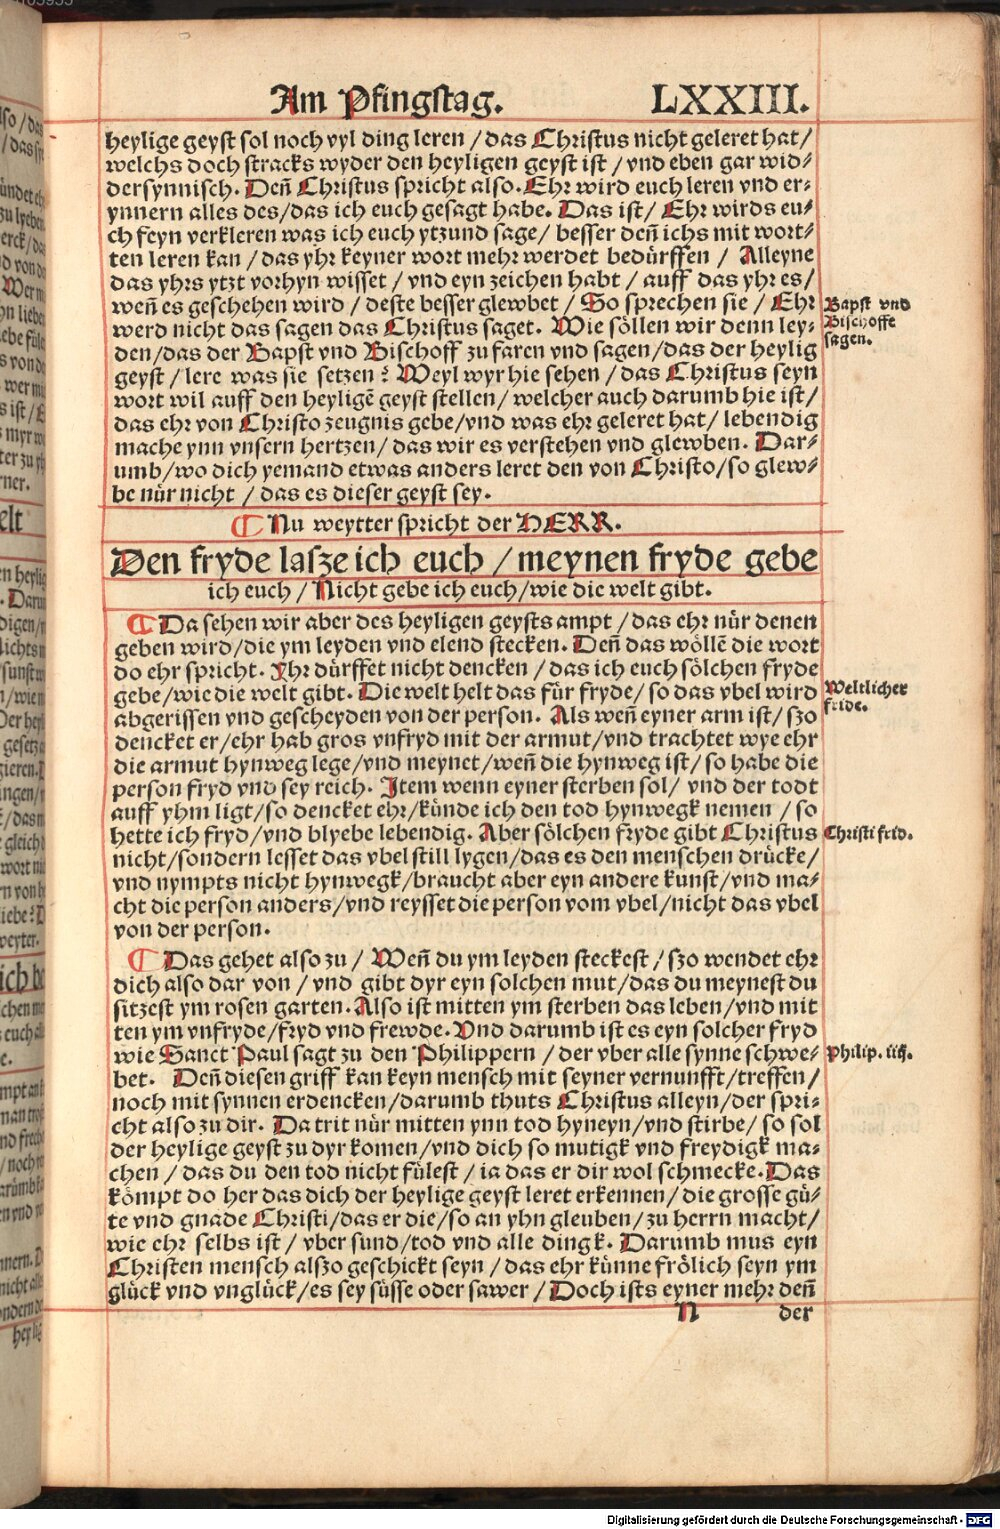 Am Pfingstag. LXXIII.
heylige geyst sol noch vyl ding leren / das Christus nicht geleret hat/
welchs doch stracks wyder den heyligen geyst ist / vnd eben gar wid⸗
dersynnisch. Deñ Christus spricht also. Ehr wird euch leren vnd er⸗
ynnern alles des/das ich euch gesagt habe. Das ist/ Ehr wirds eu⸗
ch feyn verkleren was ich euch ytzund sage/ besser deñ ichs mit wort⸗
ten leren kan / das yhr keyner wort mehr werdet bedürffen / Alleyne
das yhrs ytzt vorhyn wisset / vnd eyn zeichen habt / auff das yhr es/
weñ es geschehen wird / deste besser glewbet / So sprechen sie / Ehr
werd nicht das sagen das Christus saget. Wie söllen wir denn ley⸗
den/das der Bapst vnd Bischoff zu faren vnd sagen/das der heylig
geyst / lere was sie setzen? Weyl wyr hie sehen / das Christus seyn
wort wil auff den heyligē geyst stellen/ welcher auch darumb hie ist/
das ehr von Christo zeugnis gebe/vnd was ehr geleret hat/ lebendig
mache ynn vnsern hertzen/ das wir es verstehen vnd glewben. Dar⸗
umb/wo dich yemand etwas anders leret den von Christo/so glew⸗
be nür nicht / das es dieser geyst sey.
Bapst vnd
Bischoffe
sagen.
Nu weytter spricht der HERR.
Den fryde lasze ich euch / meynen fryde gebe
ich euch / Nicht gebe ich euch/wie die welt gibt.
Da sehen wir aber des heyligen geysts ampt / das ehr nür denen
geben wird/die ym leyden vnd elend stecken. Deñ das wöllē die wort
do ehr spricht. Yhr dürffet nicht dencken / das ich euch sölchen fryde
gebe/wie die welt gibt. Die welt helt das für fryde/ so das vbel wird
abgerissen vnd gescheyden von der person. Als weñ eyner arm ist/ szo
dencket er/ehr hab gros vnfryd mit der armut/vnd trachtet wye ehr
die armut hynweg lege/vnd meynet/weñ die hynweg ist/ so habe die
person fryd vnd sey reich. Item wenn eyner sterben sol/ vnd der todt
auff yhm ligt/so dencket ehr/künde ich den tod hynwegk nemen / so
hette ich fryd/vnd blyebe lebendig. Aber sölchen fryde gibt Christus
nicht/sondern lesset das vbel still lygen/das es den menschen drücke/
vnd nympts nicht hynwegk/braucht aber eyn andere kunst/vnd ma⸗
cht die person anders/vnd reysset die person vom vbel/nicht das vbel
von der person.
Weltlicher
fride.
Christi frid.
Das gehet also zu / Weñ du ym leyden steckest / szo wendet ehr
dich also dar von / vnd gibt dyr eyn solchen mut/das du meynest du
sitzest ym rosen garten. Also ist mitten ym sterben das leben/vnd mit
ten ym vnfryde/fryd vnd frewde. Vnd darumb ist es eyn solcher fryd
wie Sanct Paul sagt zu den Philippern / der vber alle synne schwe⸗
bet. Deñ diesen griff kan keyn mensch mit seyner vernunfft/treffen/
noch mit synnen erdencken/darumb thuts Christus alleyn/der spri⸗
cht also zu dir. Da trit nür mitten ynn tod hyneyn/vnd stirbe/ so sol
der heylige geyst zu dyr komen/vnd dich so mutigk vnd freydigk ma⸗
chen / das du den tod nicht fülest / ia das er dir wol schmecke. Das
kömpt do her das dich der heylige geyst leret erkennen/die grosse gü⸗
te vnd gnade Christi/das er die/so an yhn gleuben/zu herrn macht/
wie ehr selbs ist / vber sund/tod vnd alle dingk. Darumb mus eyn
Christen mensch alszo geschickt seyn / das ehr künne frölich seyn ym
glück vnd vnglück/es sey süsse oder sawer / Doch ists eyner mehr deñ
Philip. iiij.
N der
Digitalisierung gefördert durch die Deutsche Forschungsgemeinschaft - DFG